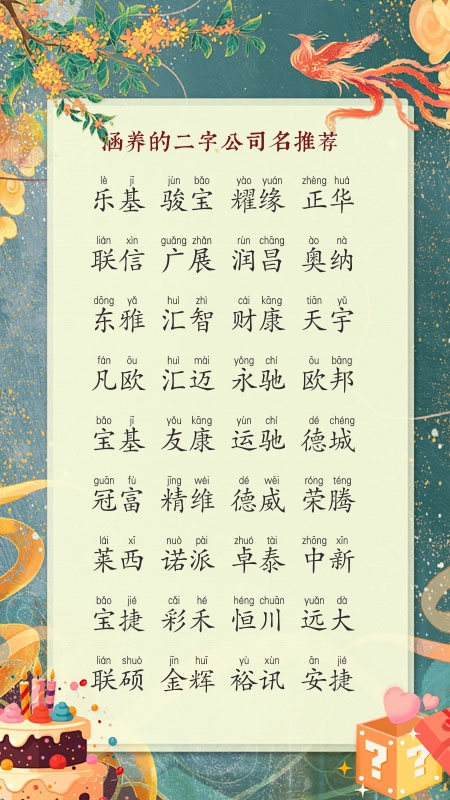 涵养的二字公司名推荐
lè jī jùn bǎo yào yuán zhèng huá
乐基 骏宝 耀缘 正华
lián xìn guǎng zhǎn rùn chāng ào nà
联信 广展 润昌 奥纳
dōng yǎ huì zhì cái kāng tiān yǔ
东雅 汇智 财康 天宇
fán ōu huì mài yǒng chí ōu bāng
凡欧 汇迈 永驰 欧邦
bǎo jī yǒu kāng yùn chí dé chéng
宝基 友康 运驰 德城
guān fù jīng wéi dé wēi róng téng
冠富 精维 德威 荣腾
lái xī nuò pài zhuó tài zhōng xīn
莱西 诺派 卓泰 中新
bǎo jié cǎi hé héng chuān yuǎn dà
宝捷 彩禾 恒川 远大
lián shuò jīn huī yù xùn ān jié
联硕 金辉 裕讯 安捷
? ?